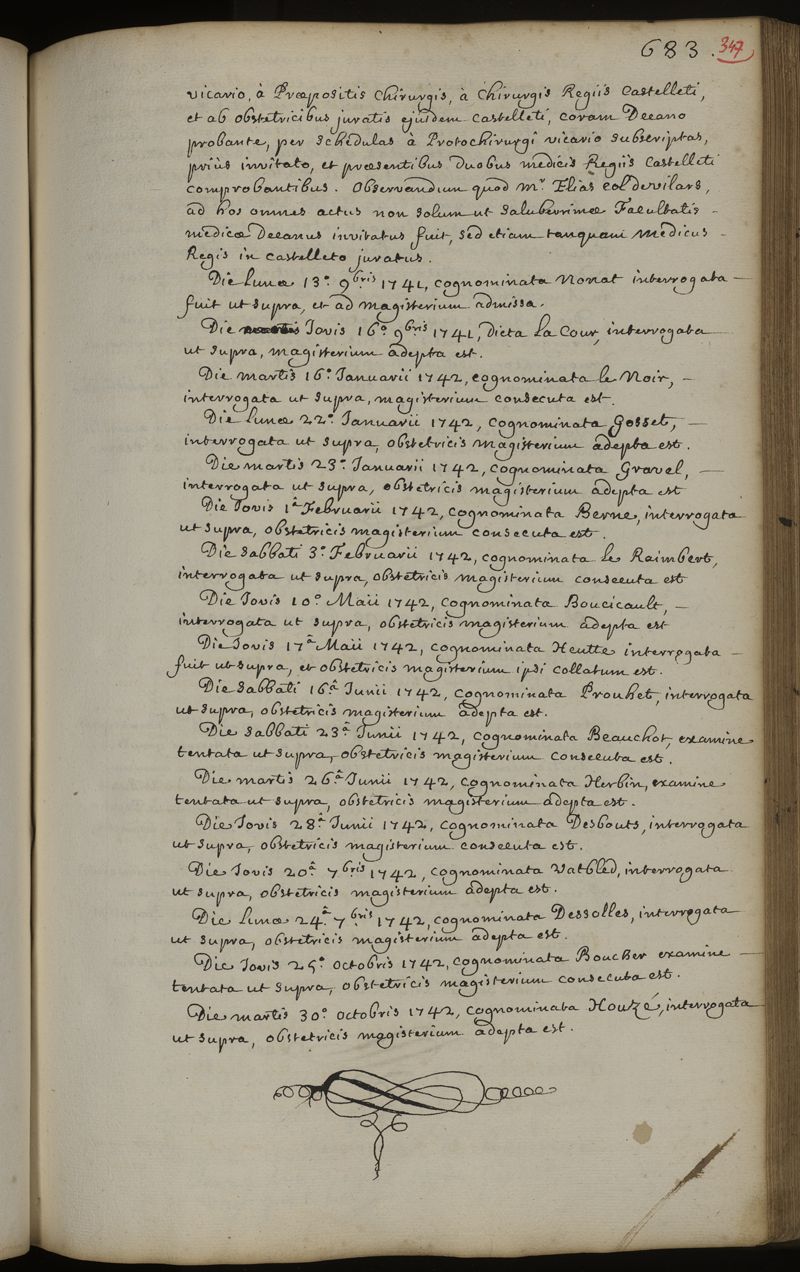 683. 347
vicario, à Præpositis Chirurgis, à Chirurgis Regiis Castelleti,
et ab obstetricibus juratis ejusdem Castelleti, coram Decano
probante, per schedulas à Protochirurgi vicario subscriptas,
priùs invitato, et præsentibus duobus medicis Regiis Castelleti
comprobantibus. Observandum quod mr. Elias col devilars,
ad hos omnes actus non solum ut saluberrimæ Facultatis -
medicæ Decanus invitatus fuit, sed etiam tanquam Medicus -
Regis in castelleto juratus.
Die Lunæ 13.a 9bris 1741, cognominata Nonat interrogata —
fuit ut supra, et ad magisterium admissa.
Die Jovis 16.a 9bris 1741, dicta La Cour, interrogata
ut supra, magisterium adepta est.
Die martis 16.a Januarii 1742, cognominata le Noir, —
interrogata ut supra, magisterium consecuta est.
Die Lunæ 22.a Januarii 1742, cognominata Gosset, —
interrogata ut supra, obstetricis magisterium adepta est.
Die martis 23.a Januarii 1742, cognominata Gravel, —
interrogata ut supra, obstetricis magisterium adepta est
Die Jovis 1.a Februarii 1742, cognominata Berne, interrogata
ut supra, obstetricis magisterium consecuta est.
Die sabbati 3.a Februarii 1742, cognominata le Raimbert,
interrogata ut supra, obstetricis magisterium consecuta est
Die Jovis 10.a Maii 1742, cognominata Boucicault, —
interrogata ut supra, obstetricis magisterium adepta est
Die Jovis 17.a Maii 1742, cognominata Heutte interrogata —
fuit ut supra, et obstetricis magisterium ipsi collatum est.
Die sabbati 16.a Junii 1742, cognominata Prouhet, interrogata
ut supra, obstetricis magisterium adepta est.
Die sabbati 23.a Junii 1742, cognominata Beauchot, examine
tentata ut supra, obstetricis magisterium consecuta est.
Die martis 26.a Junii 1742, cognominata Herbin, examine
tentata ut supra, obstetricis magisterium adepta est.
Die Jovis 28.a Junii 1742, cognominata Desbouts, interrogata
ut supra, obstetricis magisterium consecuta est.
Die Jovis 20.a 7bris 1742, cognominata Vatbled, interrogata
ut supra, obstetricis magisterium adepta est.
Die Lunæ 24.a 7bris 1742, cognominata Dessolles, interrogata
ut supra, obstetricis magisterium adepta est.
Die Jovis 25.a octobris 1742, cognominata Boucher examine —
tentata ut supra, obstetricis magisterium consecuta est.
Die martis 30.a octobris 1742, cognominata Houzé, interrogata
ut supra, obstetricis magisterium adepta est.